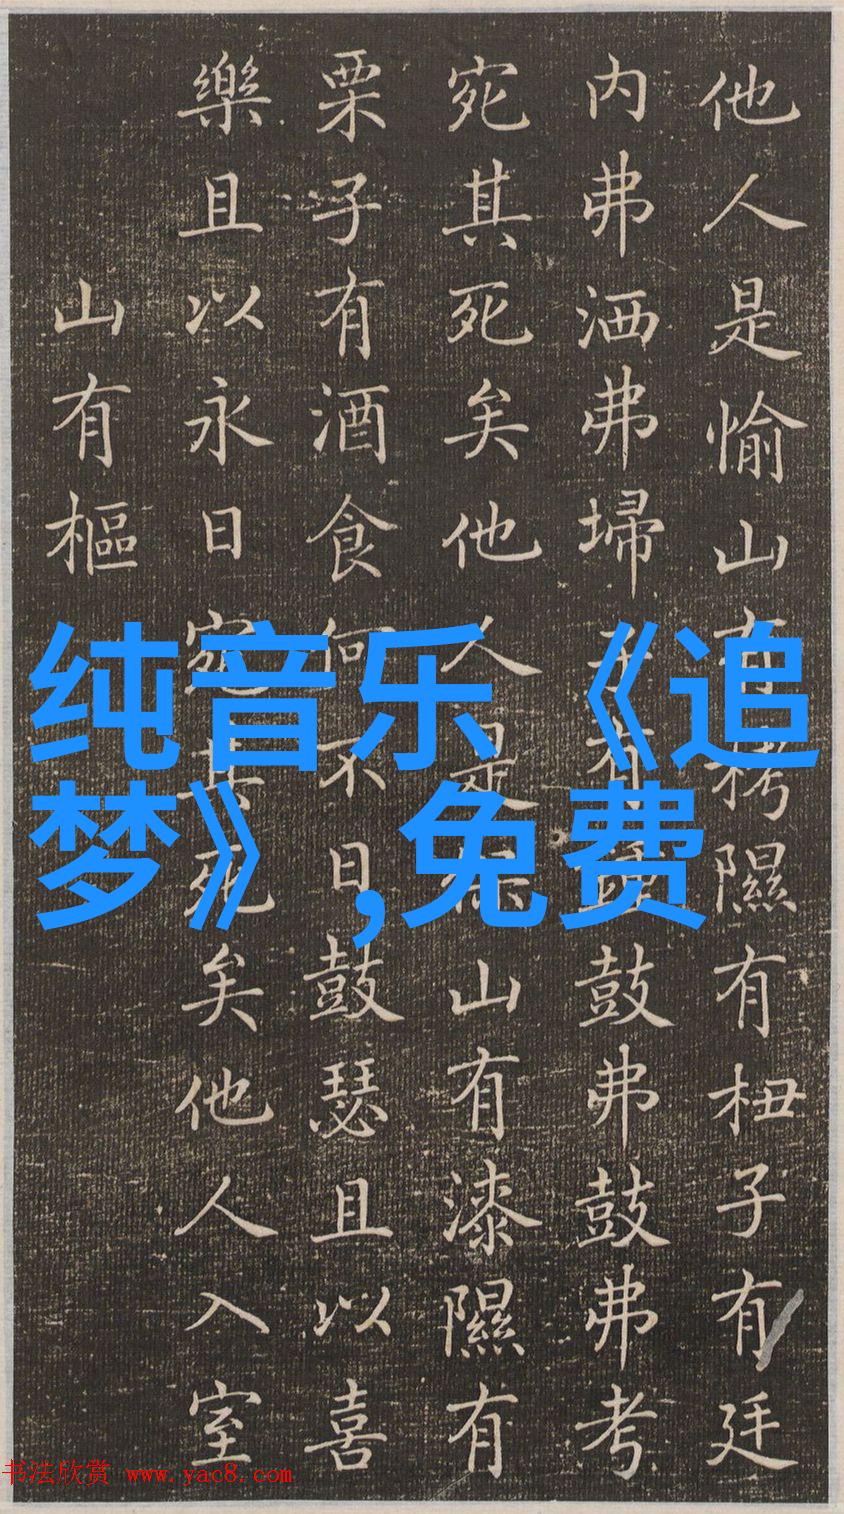 他人是愉山有栲隰有杻子有廷
内弗洒弗埽子有鼓弗鼓弗考
宛其死矣他人是保山有漆隰有
栗子有酒食何不日鼓瑟且以喜
樂且以永日宛其死矣他人入室
山有樞
纯音乐《追
梦》,免费
书法欣赏 www.yac8.com